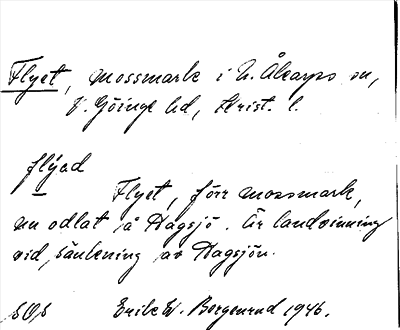 Flyet, mossmark i N. Åkarps sn,
V. Göinge hd, Krist. l.
flýəd
Flyet, förr mossmark,
nu odlat å Hagsjö. Är landvinning
vid sänkning av Hagsjön.
SOS Erik W. Bergenrud 1946.